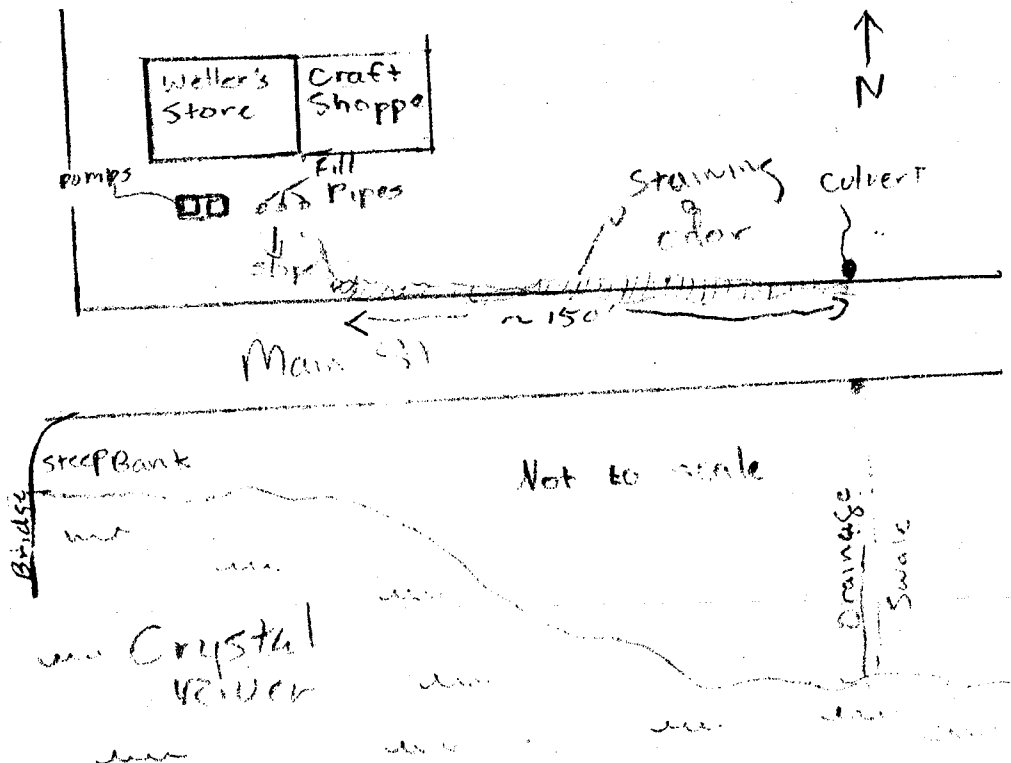 Weller's
Store
Craft
Shoppe
N
pumps
Fill
Pipes
Staining
odor
culvert
slope
~ 150'
Main St
steep Bank
Not to scale
Bridge
Drainage
Swale
Crystal
River